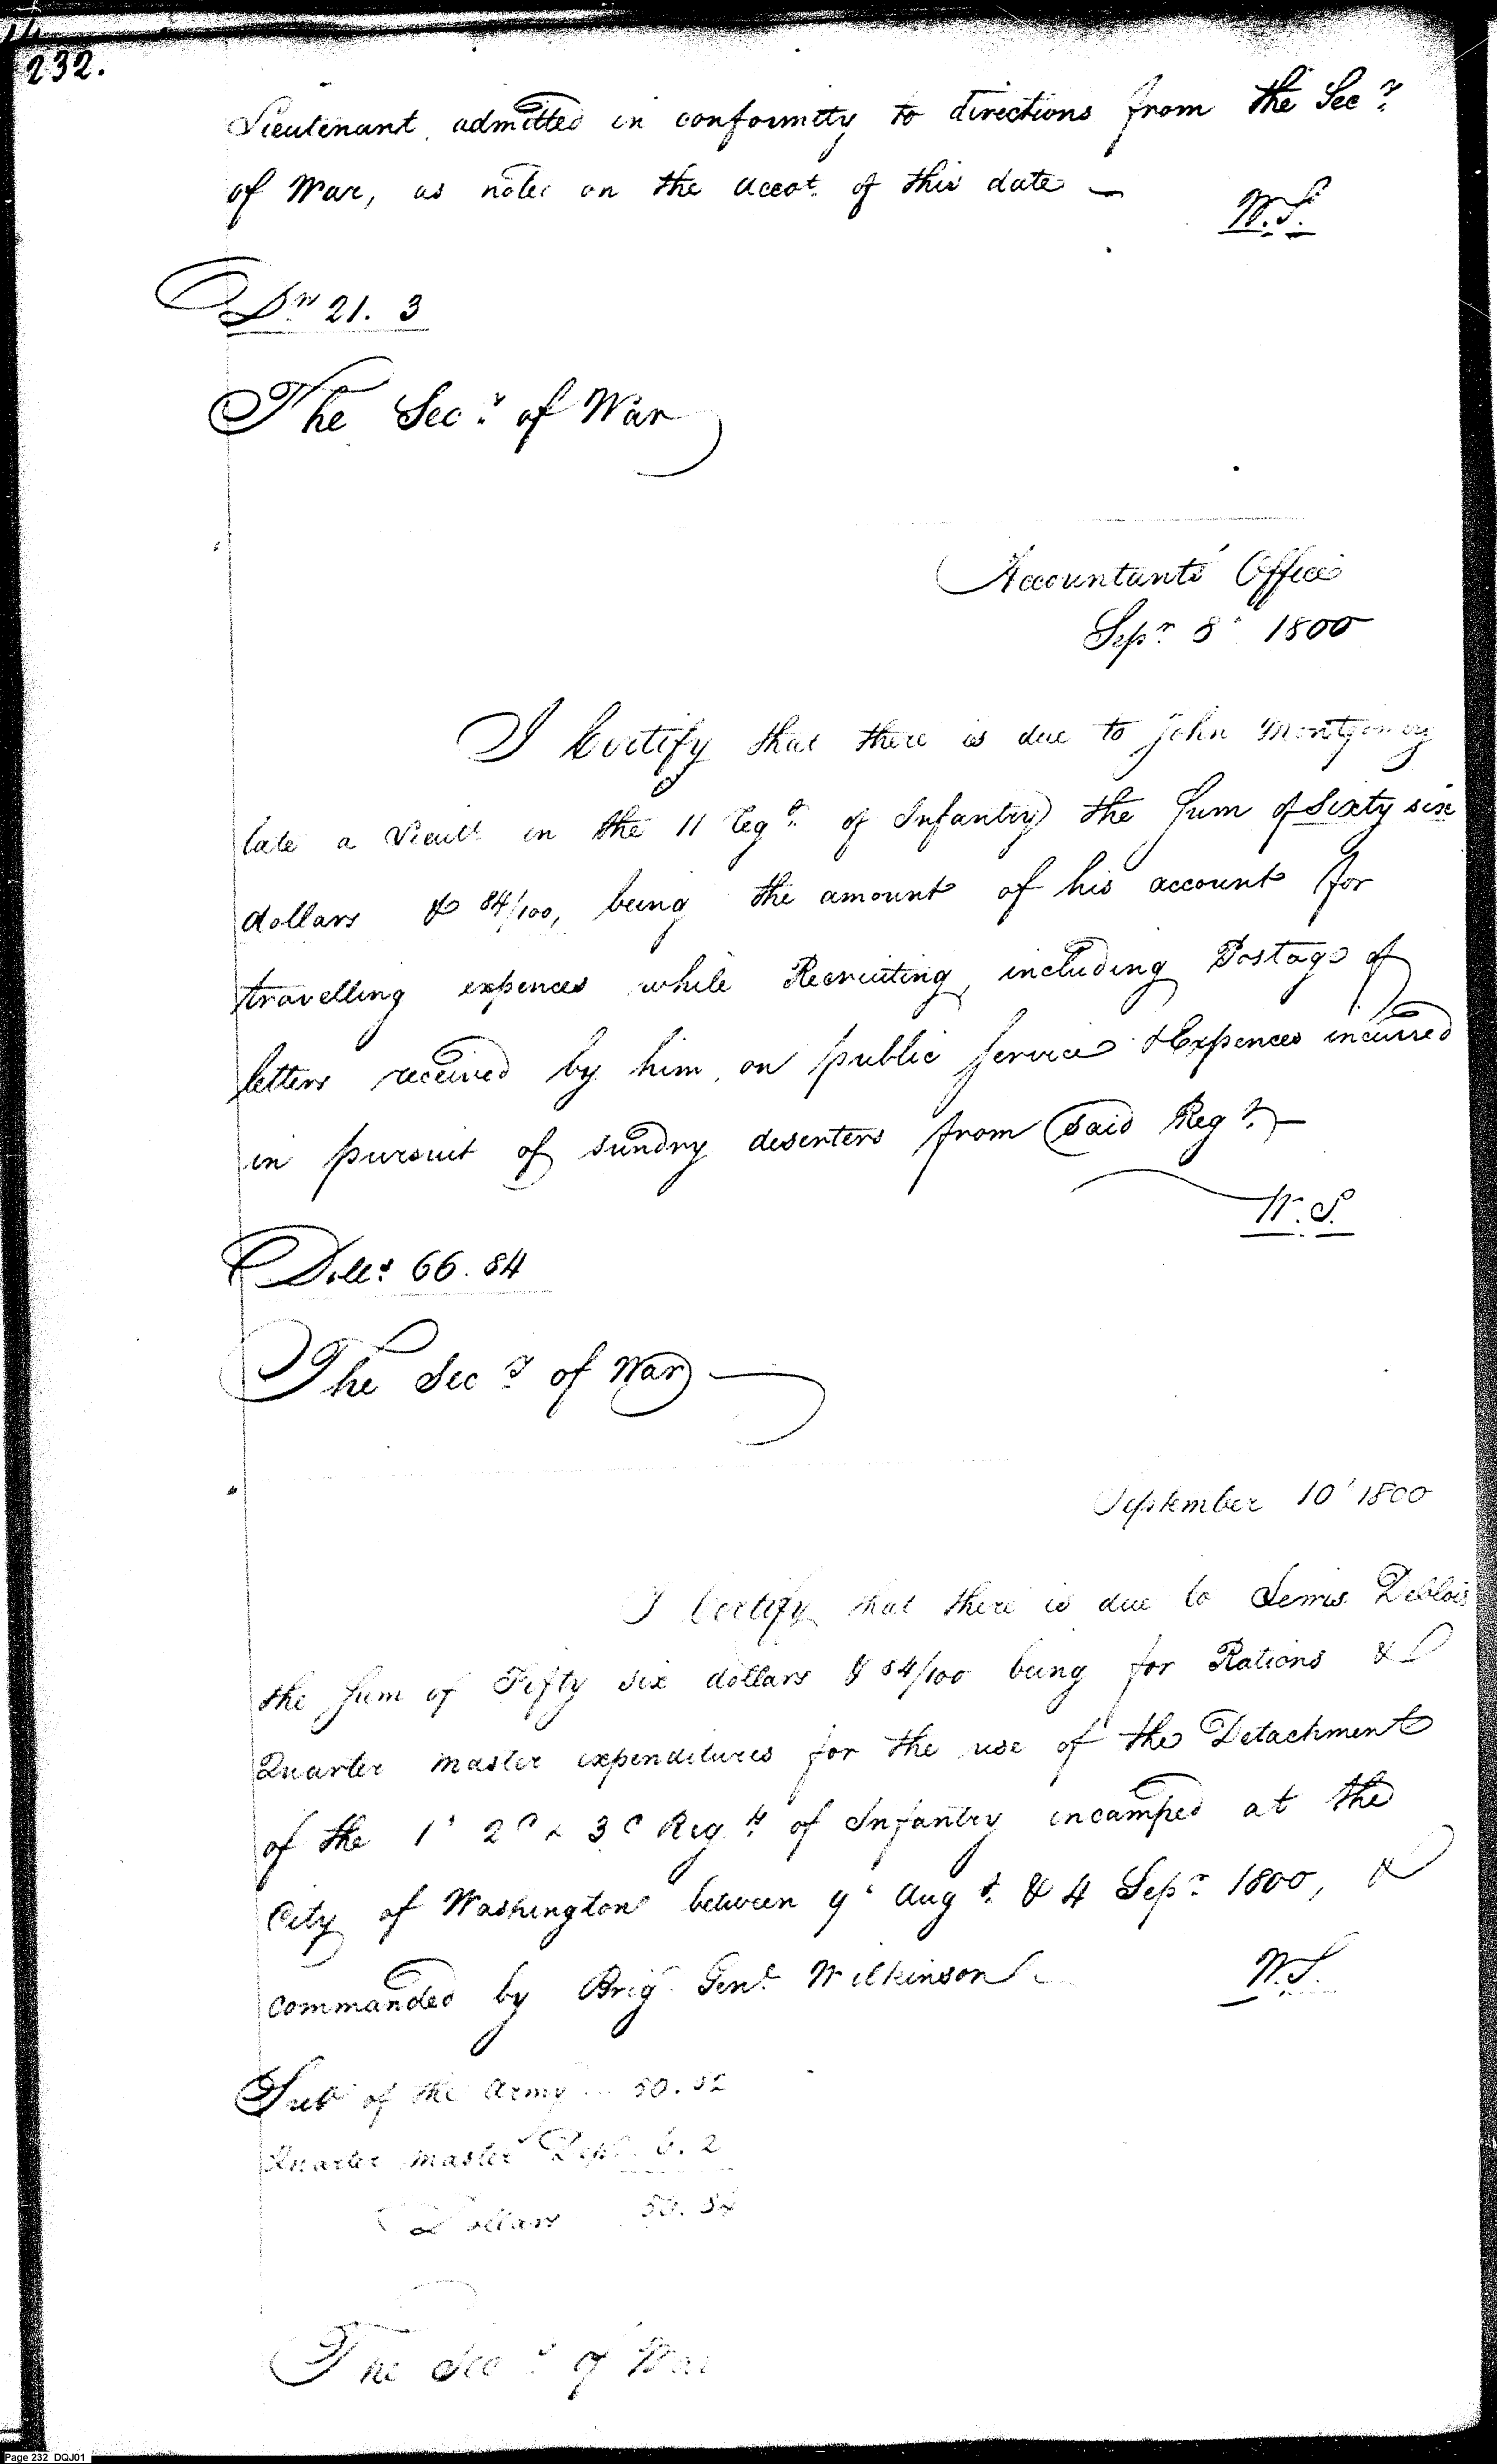 232.
Lieutenant admitted in conformity to directions from the Secy
of War, as noted on the accot. of this date —
W.S.
21. 3
The Secy of War
Accountants' Office
Sepr 8 1800
I Certify that there is due to John Montgomery
late a Lieut in the 11 Regt of Infantry the Sum of Sixty six
dollars & 84/100, being the amount of his account for
travelling expences while Recruiting, including Postage of
letters received by him, on public Service & Expences incurred
in pursuit of sundry deserters from said Regt. —
W.S.
Dolls 66.84
The Secy of War
September 10 1800
I Certify that there is due to Lewis Deblois
the Sum of Fifty six dollars & 54/100 being for Rations &
Quarter master expenditures for the use of the Detachment
of the 1 2d & 3d Regts of Infantry incamped at the
City of Washington between 9 Augt. & 4 Sepr 1800, &
commanded by Brig. Genl Wilkinson
W.S.
Sub of the Army 50.52
Quarter master Dept. 6.2
Dollars
The Secy of War
Page 232 DQJ01